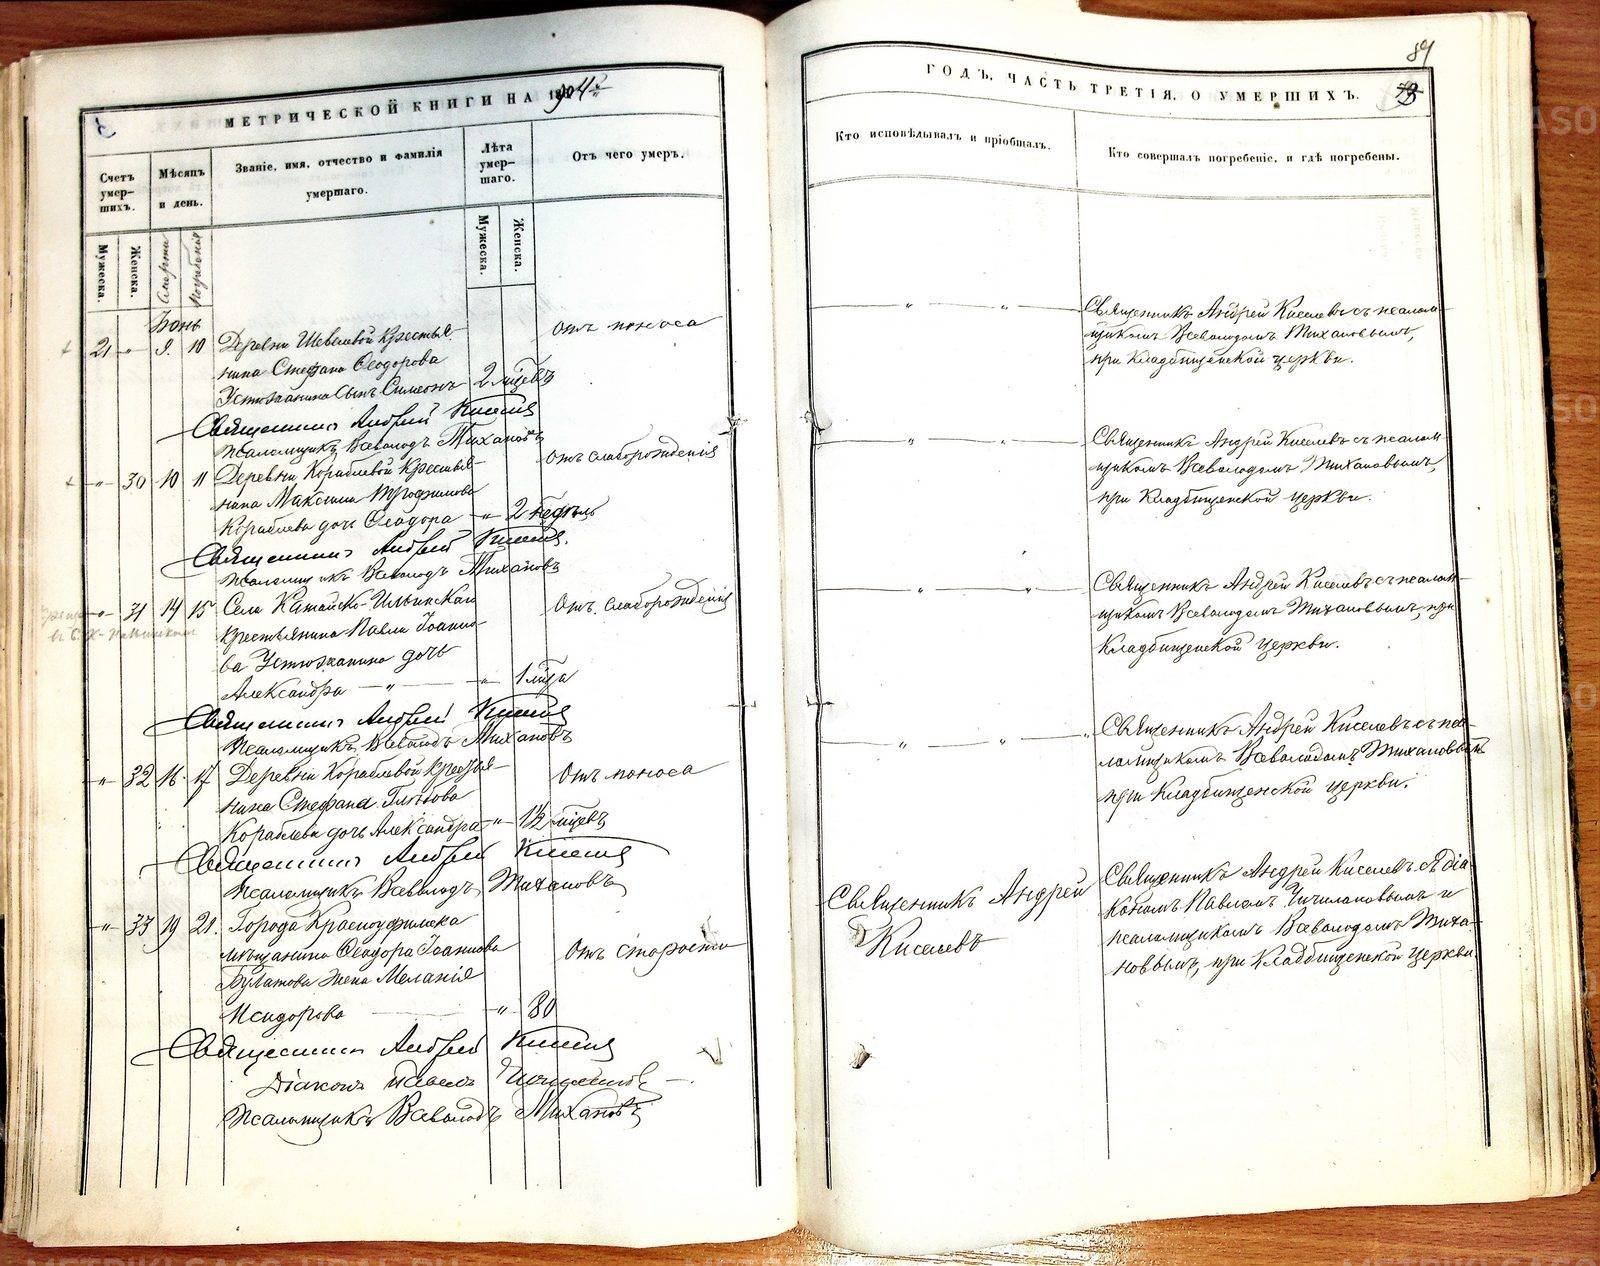 МЕТРИЧЕСКОЙ КНИГИ НА 1904
Счетъ умер-
шихъ.
Мѣсяцъ
и день.
Званіе, имя, отчество и фамилія
умершаго.
Лѣта
умер-
шаго.
Отъ чего умеръ.
Мужеска.
Женска.
Смерти
Погребенія
Мужеска.
Женска.
Іюнь
21 " 9. 10 Деревни Шевелевой крестья-
нина Стефана Ѳеодорова
Устюжанина сынъ Симеонъ 2 мѣсяц
отъ поноса
Священникъ Андрей Киселев
Псаломщикъ Всеволодъ Тихановъ
" 30 10 11 Деревни Кораблевой крестья-
нина Максима Трофимова
Кораблева дочь Ѳеодора " 2 недѣль
отъ слаборожденія
Священникъ Андрей Киселев
Псаломщикъ Всеволодъ Тихановъ
" 31 14 15 Села Катайско-Ильинскаго
крестьянина Павла Іоанно-
ва Устюжанина дочь
Александра " " 1 мѣся
Отъ слаборожденія
Священникъ Андрей Киселев
Псаломщикъ Всеволодъ Тихановъ
" 32 16 17 Деревни Кораблевой крестья-
нина Стефана Глѣбова
Кораблева дочь Александра " 1½ мѣсяц
Отъ поноса
Священникъ Андрей Киселев
Псаломщикъ Всеволодъ Тихановъ
" 33 19 21. Города Красноуфимска
мѣщанина Ѳеодора Іоаннова
Булатова жена Меланія
Исидорова " 80
Отъ старости
Священникъ Андрей Киселев
Діаконъ Павел
Псаломщикъ Всеволодъ Тихановъ
84
ГОДЪ, ЧАСТЬ ТРЕТІЯ, О УМЕРШИХЪ.
Кто исповѣдывалъ и пріобщалъ.
Кто совершалъ погребеніе, и гдѣ погребены.
Священникъ Андрей Киселевъ съ псалом-
щикомъ Всеволодомъ Тихановымъ,
при Кладбищенской церкви.
Священникъ Андрей Киселевъ съ псалом-
щикомъ Всеволодомъ Тихановымъ,
при Кладбищенской церкви.
Священникъ Андрей Киселевъ съ псалом-
щикомъ Всеволодомъ Тихановымъ, при
Кладбищенской церкви.
Священникъ Андрей Киселевъ съ пса-
ломщикомъ Всеволодомъ Тихановымъ
при Кладбищенской церкви.
Священникъ Андрей
Киселевъ
Священникъ Андрей Киселевъ съ діа-
кономъ Павломъ и
псаломщикомъ Всеволодомъ Тиха-
новымъ, при Кладбищенской церкви.